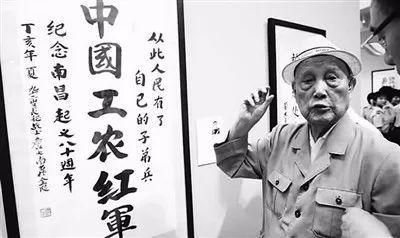 从此人民有了
自己的子弟兵
中國工农红軍
纪念南昌起义八十週年
丁亥年夏